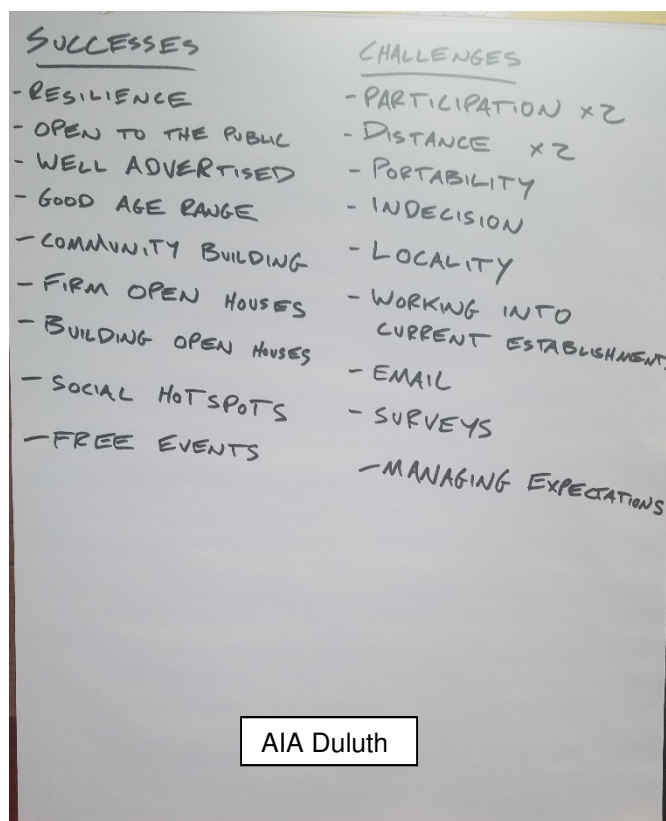 SUCCESSES
- RESILIENCE
- OPEN TO THE PUBLIC
- WELL ADVERTISED
- GOOD AGE RANGE
- COMMUNITY BUILDING
- FIRM OPEN HOUSES
- BUILDING OPEN HOUSES
- SOCIAL HOTSPOTS
- FREE EVENTS
CHALLENGES
- PARTICIPATION x2
- DISTANCE x2
- PORTABILITY
- INDECISION
- LOCALITY
- WORKING INTO
CURRENT ESTABLISHMENTS
- EMAIL
- SURVEYS
- MANAGING EXPECTATIONS
AIA Duluth